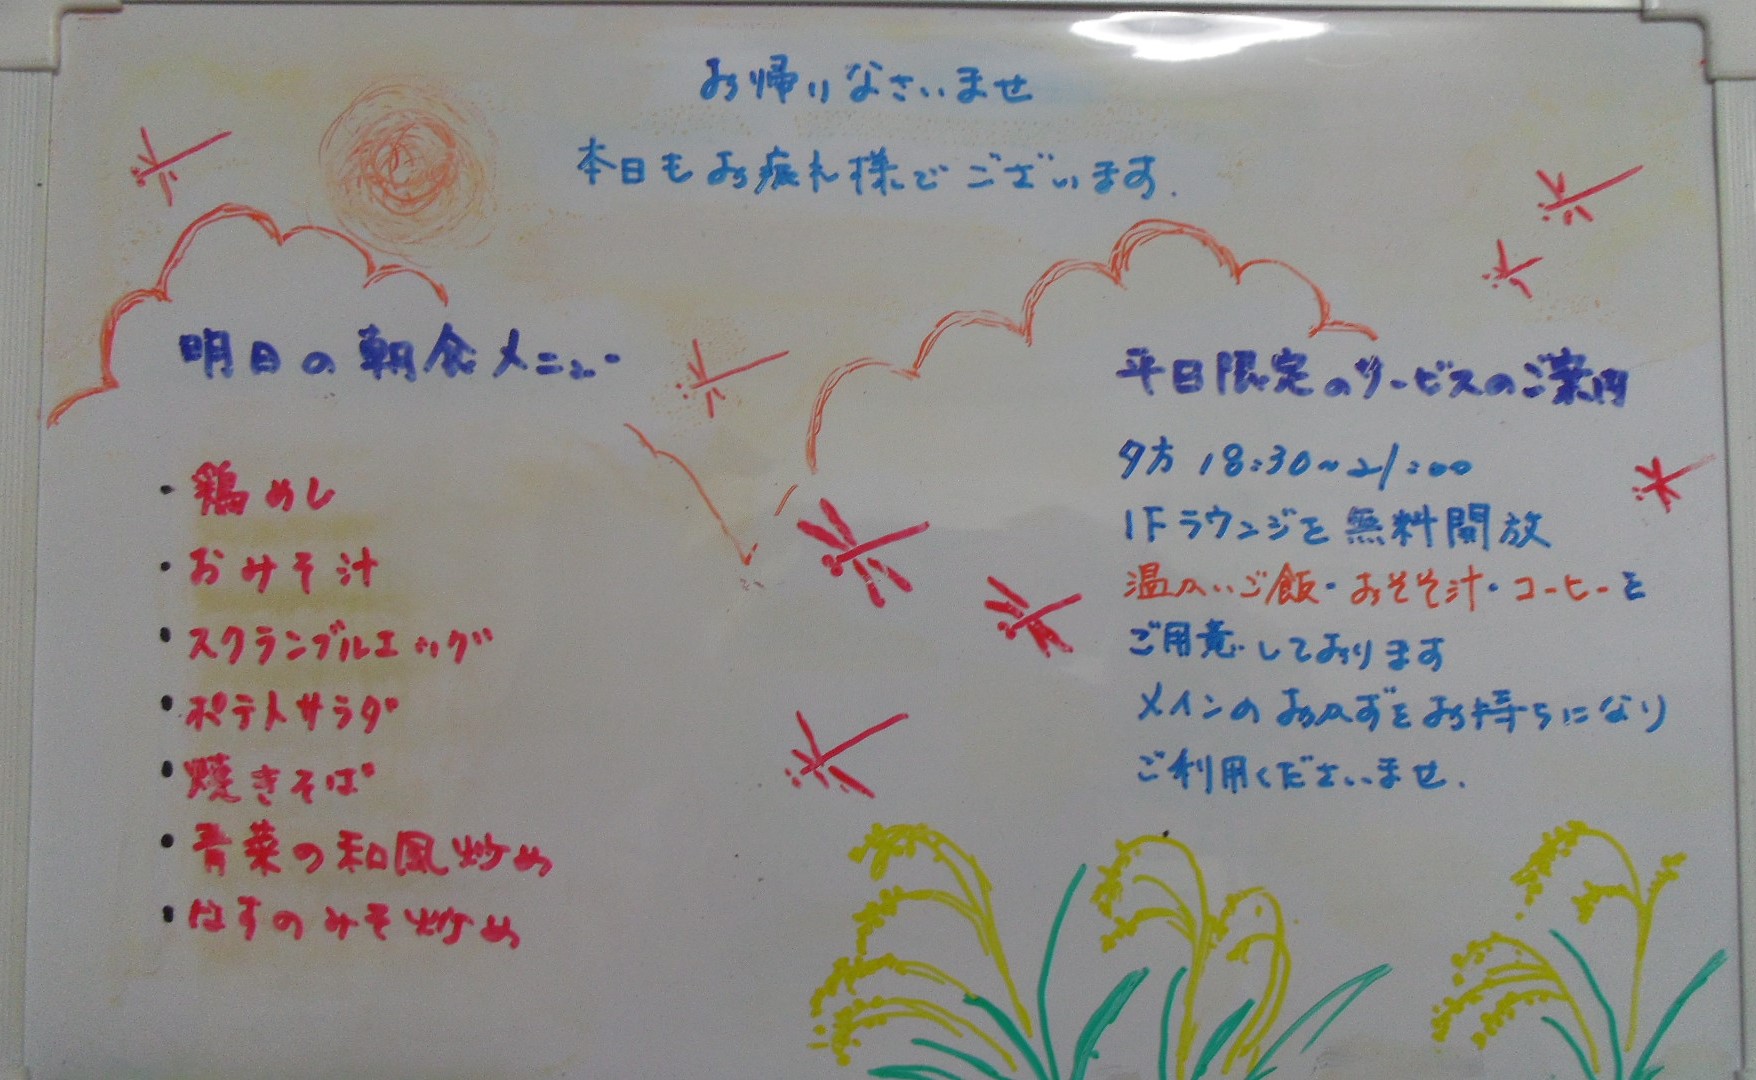 お帰りなさいませ
本日もお疲れ様でございます.
明日の朝食メニュー
・鶏めし
・おみそ汁
・スクランブルエッグ
・ポテトサラダ
・焼きそば
・青菜の和風炒め
・はすのみそ炒め
平日限定のサービスのご案内
夕方 18:30~21:00
1Fラウンジを無料開放
温かいご飯・おそそ汁・コーヒーを
ご用意しております
メインのおかずをお持ちになり
ご利用くださいませ.